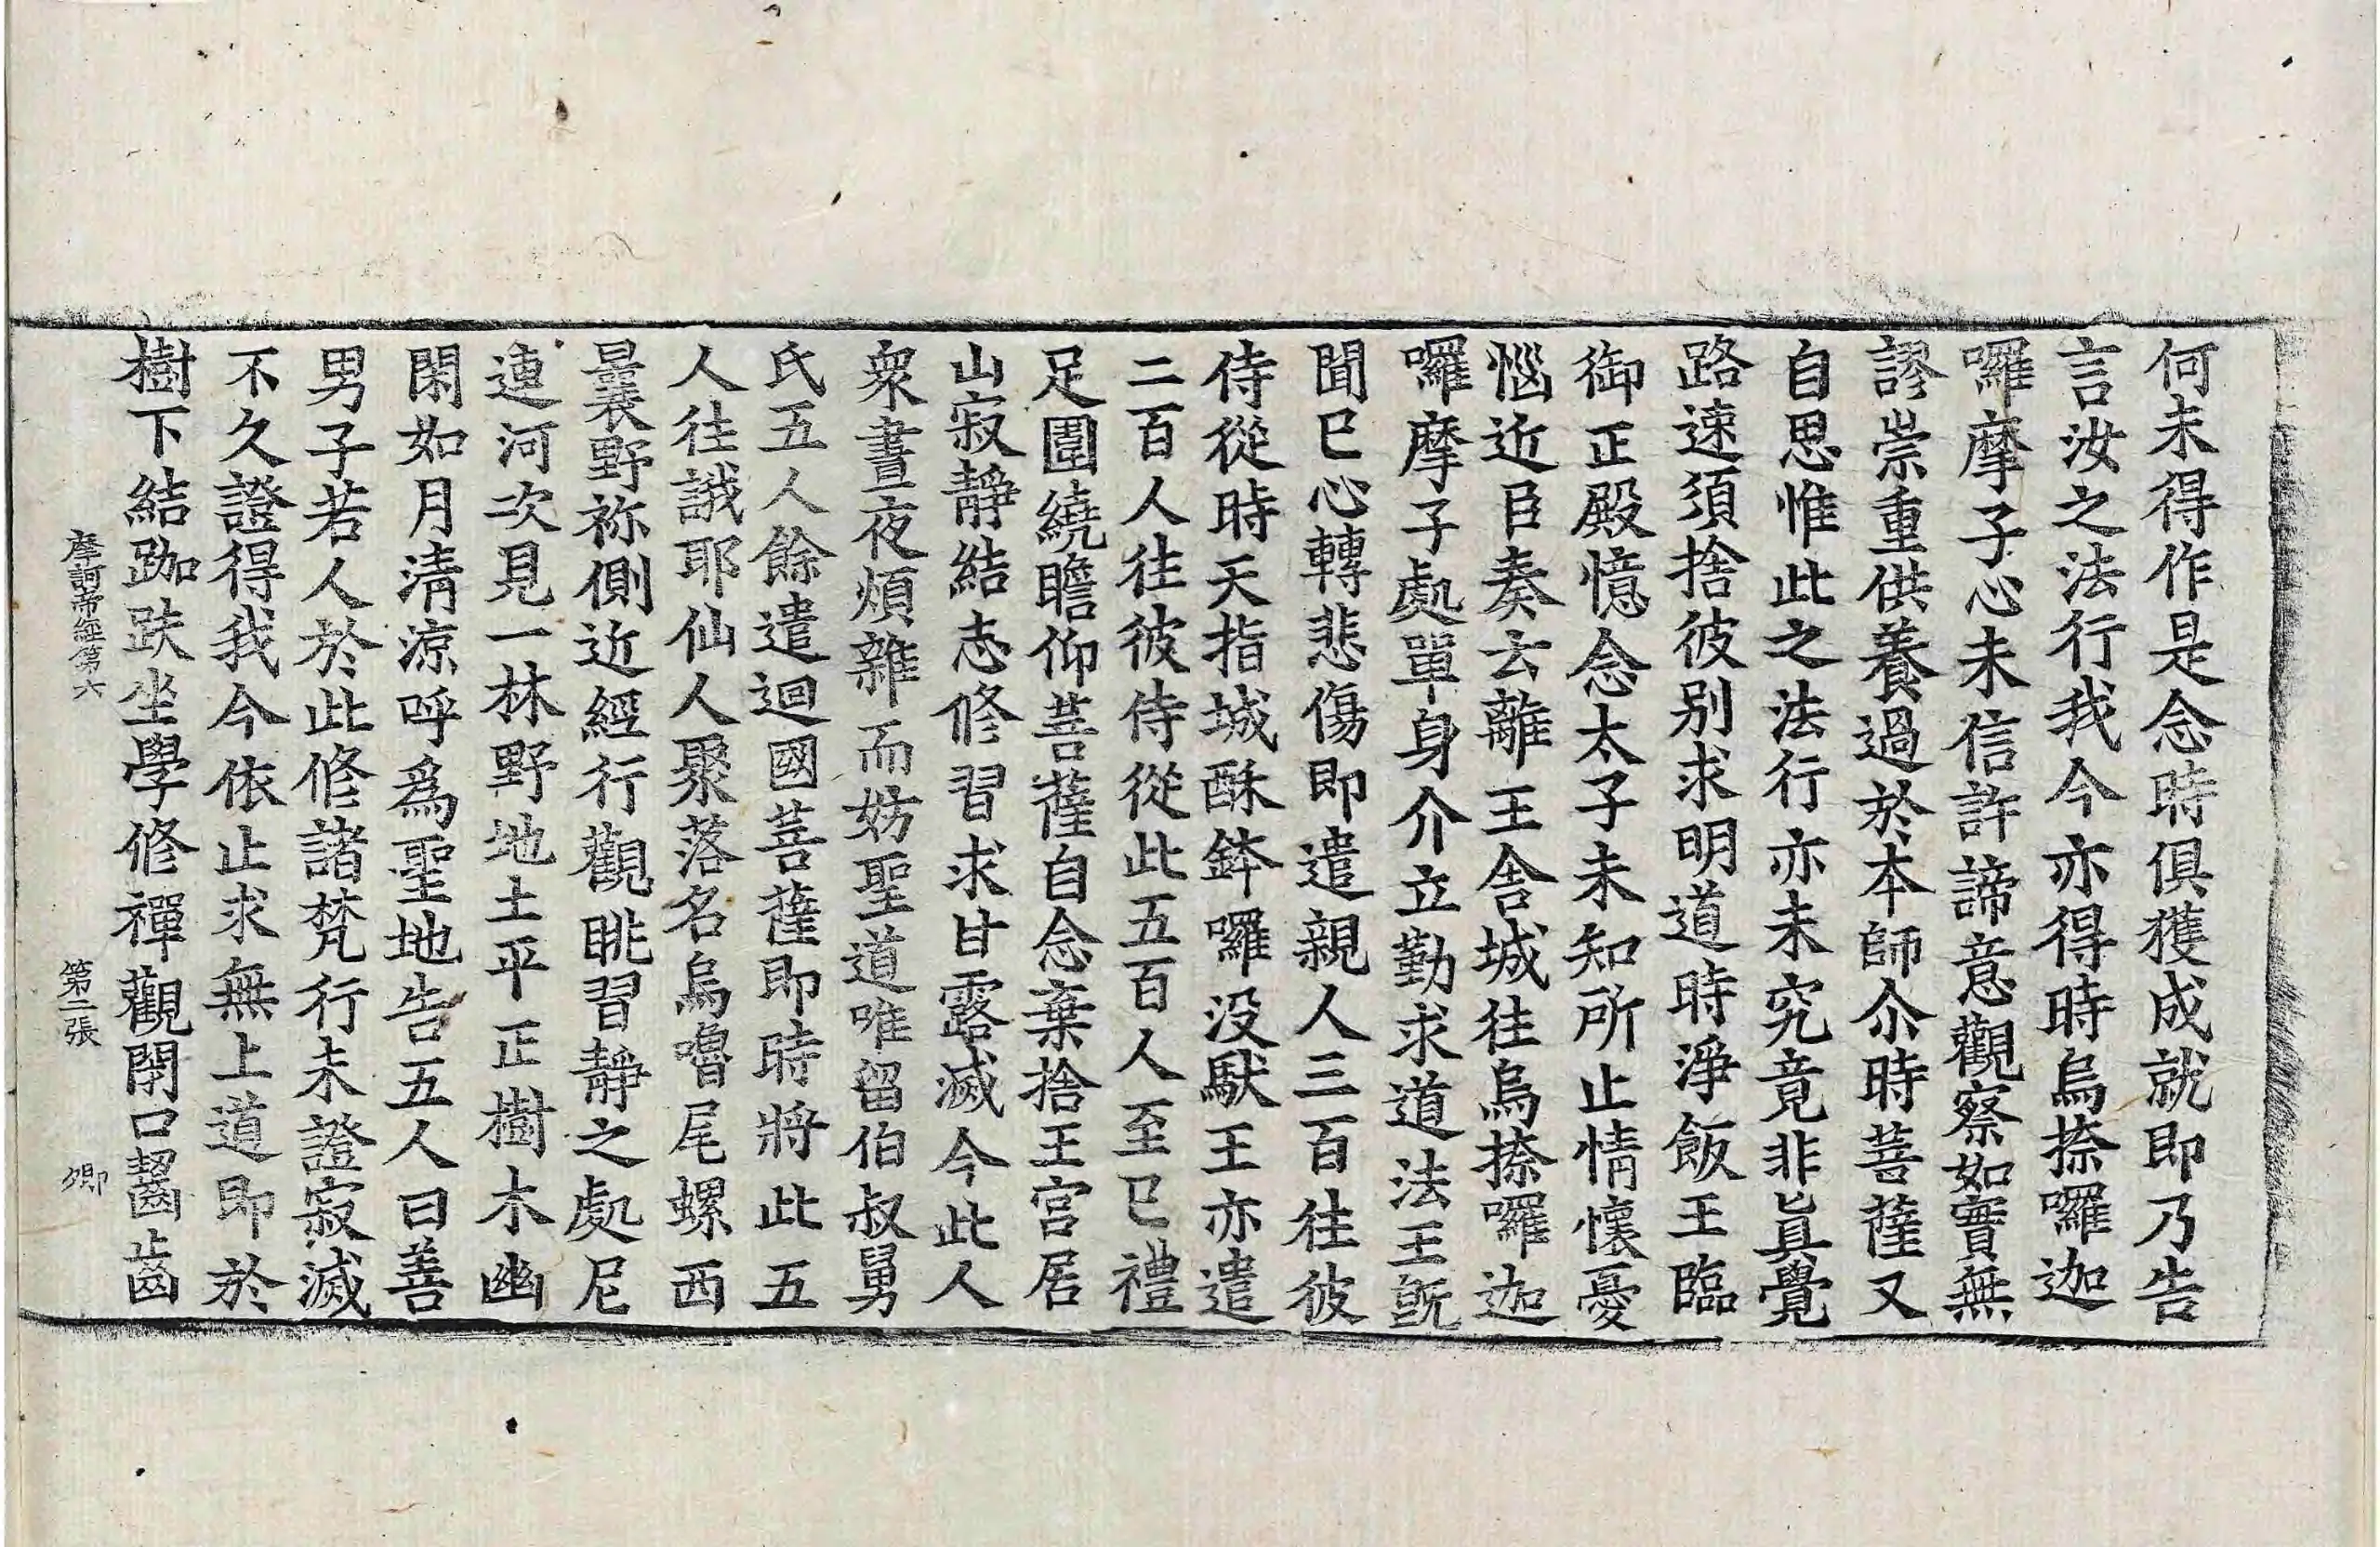 何未得作是念時俱獲成就即乃告
言汝之法行我今亦得時烏捺囉迦
囉摩子心未信許諦意觀察如實無
謬崇重供養過於本師尒時菩薩又
自思惟此之法行亦未究竟非眞覺
路速須捨彼別求明道時淨飯王臨
御正殿憶念太子未知所止情懷憂
惱近臣奏云離王舍城往烏捺囉迦
囉摩子處單身介立勤求道法王旣
聞已心轉悲傷即遣親人三百往彼
侍從時天指城酥鉢囉没馱王亦遣
二百人往彼侍從此五百人至已禮
足圍繞瞻仰菩薩自念棄捨王宮居
山寂靜結志修習求甘露滅今此人
衆晝夜煩雜而妨聖道唯留伯叔舅
氏五人餘遣迴國菩薩即時將此五
人往誐耶仙人聚落名烏嚕尾螺西
曩野祢側近經行觀眺習靜之處尼
連河次見一林野地土平正樹木幽
閑如月清涼呼爲聖地告五人曰善
男子若人於此修諸梵行未證寂滅
不久證得我今依止求無上道即於
樹下結跏趺坐學修禪觀閉口齧齒
摩訶帝經第六 第二張 卿